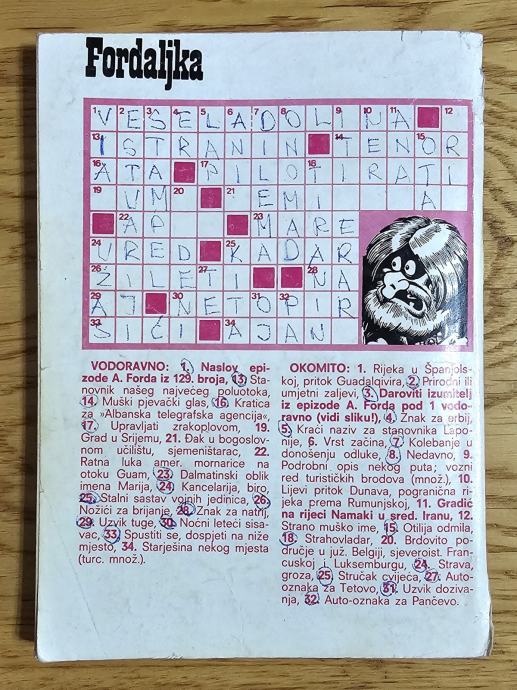 Fordaljka
V E S E L A D O L I N A
I S T R A N I N T E N O R
A T A P I L O T I R A T I
U M E M I A
A P M A R E
U R E D K A D A R
Ž I L E T I N A
A J N E T O P I R
S I Ć I A J A N
VODORAVNO: 1. Naslov epi-
zode A. Forda iz 129. broja, 13. Sta-
novnik našeg najvećeg poluotoka,
14. Muški pjevački glas, 16. Kratica
za »Albanska telegrafska agencija«,
17. Upravljati zrakoplovom, 19.
Grad u Srijemu, 21. Đak u bogoslov-
nom učilištu, sjemeništarac, 22.
Ratna luka amer. mornarice na
otoku Guam, 23. Dalmatinski oblik
imena Marija, 24. Kancelarija, biro,
25. Stalni sastav vojnih jedinica, 26.
Nožići za brijanje, 28. Znak za natrij,
29. Uzvik tuge, 30. Noćni leteći sisa-
vac, 33. Spustiti se, dospjeti na niže
mjesto, 34. Starješina nekog mjesta
(turc. množ.).
OKOMITO: 1. Rijeka u Španjols-
koj, pritok Guadalqivira, 2. Prirodni ili
umjetni zaljevi, 3. Daroviti izumitelj
iz epizode A. Forda pod 1 vodo-
ravno (vidi sliku!), 4. Znak za erbij,
5. Kraći naziv za stanovnika Lapo-
nije, 6. Vrst začina, 7. Kolebanje u
donošenju odluke, 8. Nedavno, 9.
Podrobni opis nekog puta; vozni
red turističkih brodova (množ.), 10.
Lijevi pritok Dunava, pogranična ri-
jeka prema Rumunjskoj, 11. Gradić
na rijeci Namaki u sred. Iranu, 12.
Strano muško ime, 15. Otilija odmila,
18. Strahovladar, 20. Brdovito po-
dručje u juž. Belgiji, sjeveroist. Fran-
cuskoj i Luksemburgu, 24. Strava,
groza, 25. Stručak cvijeća, 27. Auto-
oznaka za Tetovo, 31. Uzvik doziva-
nja, 32. Auto-oznaka za Pančevo.